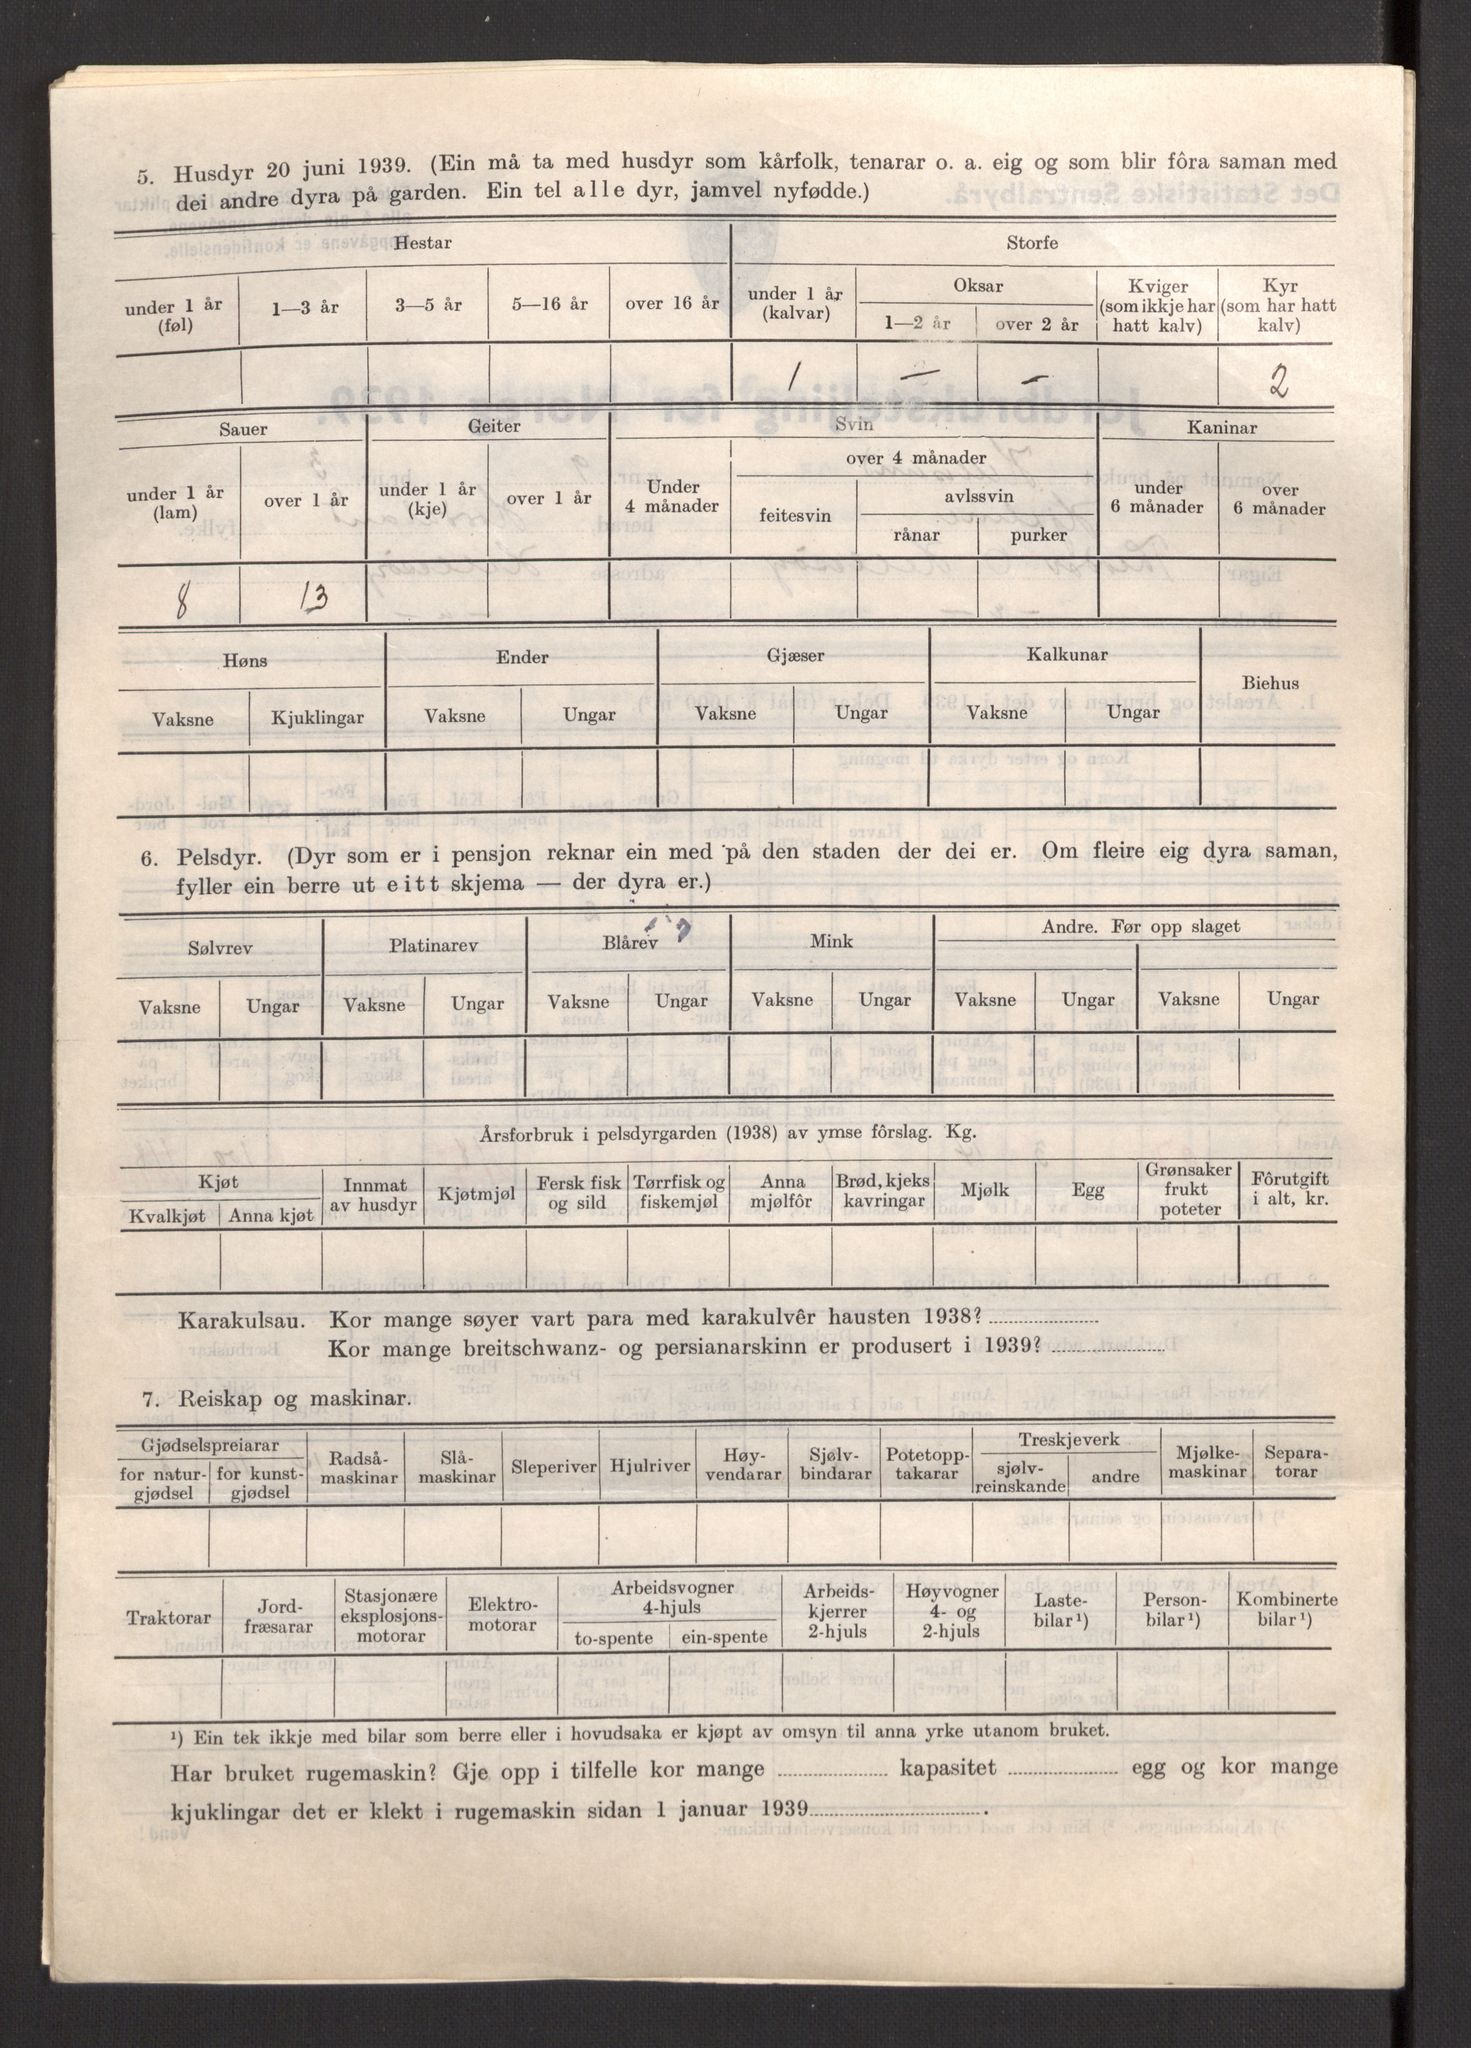 5. Husdyr 20 juni 1939. (Ein må ta med husdyr som kårfolk, tenarar o. a. eig og som blir fôra saman med
dei andre dyra på garden. Ein tel alle dyr, jamvel nyfødde.)
Hestar Storfe
under 1 år (føl) 1—3 år 3—5 år 5—16 år over 16 år under 1 år (kalvar) Oksar 1—2 år over 2 år Kviger (som ikkje har hatt kalv) Kyr (som har hatt kalv)
1 — — 2
Sauer Geiter Svin Kaninar
under 1 år (lam) over 1 år under 1 år (kje) over 1 år Under 4 månader over 4 månader feitesvin avlssvin rånar purker under 6 månader over 6 månader
8 13
Høns Ender Gjæser Kalkunar Biehus
Vaksne Kjuklingar Vaksne Ungar Vaksne Ungar Vaksne Ungar
6. Pelsdyr. (Dyr som er i pensjon reknar ein med på den staden der dei er. Om fleire eig dyra saman,
fyller ein berre ut eitt skjema — der dyra er.)
Sølvrev Platinarev Blårev Mink Andre. Før opp slaget
Vaksne Ungar Vaksne Ungar Vaksne Ungar Vaksne Ungar Vaksne Ungar Vaksne Ungar
Årsforbruk i pelsdyrgarden (1938) av ymse fôrslag. Kg.
Kjøt Kvalkjøt Anna kjøt Innmat av husdyr Kjøtmjøl Fersk fisk og sild Tørrfisk og fiskemjøl Anna mjølfôr Brød, kjeks kavringar Mjølk Egg Grønsaker frukt poteter Fôrutgift i alt, kr.
Karakulsau. Kor mange søyer vart para med karakulvêr hausten 1938?
Kor mange breitschwanz- og persianarskinn er produsert i 1939?
7. Reiskap og maskinar.
Gjødselspreiarar for natur-gjødsel for kunst-gjødsel Radså-maskinar Slå-maskinar Sleperiver Hjulriver Høy-vendarar Sjølv-bindarar Potetopp-takarar Treskjeverk sjølv-reinskande andre Mjølke-maskinar Separa-torar
Traktorar Jord-fræsarar Stasjonære eksplosjons-motorar Elektro-motorar Arbeidsvogner 4-hjuls to-spente ein-spente Arbeids-kjerrer 2-hjuls Høyvogner 4- og 2-hjuls Laste-bilar ¹) Person-bilar ¹) Kombinerte bilar ¹)
¹) Ein tek ikkje med bilar som berre eller i hovudsaka er kjøpt av omsyn til anna yrke utanom bruket.
Har bruket rugemaskin? Gje opp i tilfelle kor mange kapasitet egg og kor mange
kjuklingar det er klekt i rugemaskin sidan 1 januar 1939 .